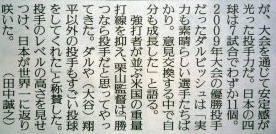 が、大会を通じて安定感が
光った投手力だ。日本の四
球は7試合でわずか11個。
2009年大会の優勝投手
だったダルビッシュは「実
力も素晴らしい選手たちば
かり。意見交換する中で自
分も成長した」と語る。
強打者が並ぶ米国の重量
打線を抑え、栗山監督は「勝
つなら投手だと思ってやっ
てきた。ダルや(大谷)翔
平以外の投手もすごい投球
をしてくれた」と称賛した。
投手のレベルの高さを見せ
つけ、日本が世界一に返り
咲いた。
(田中誠之)